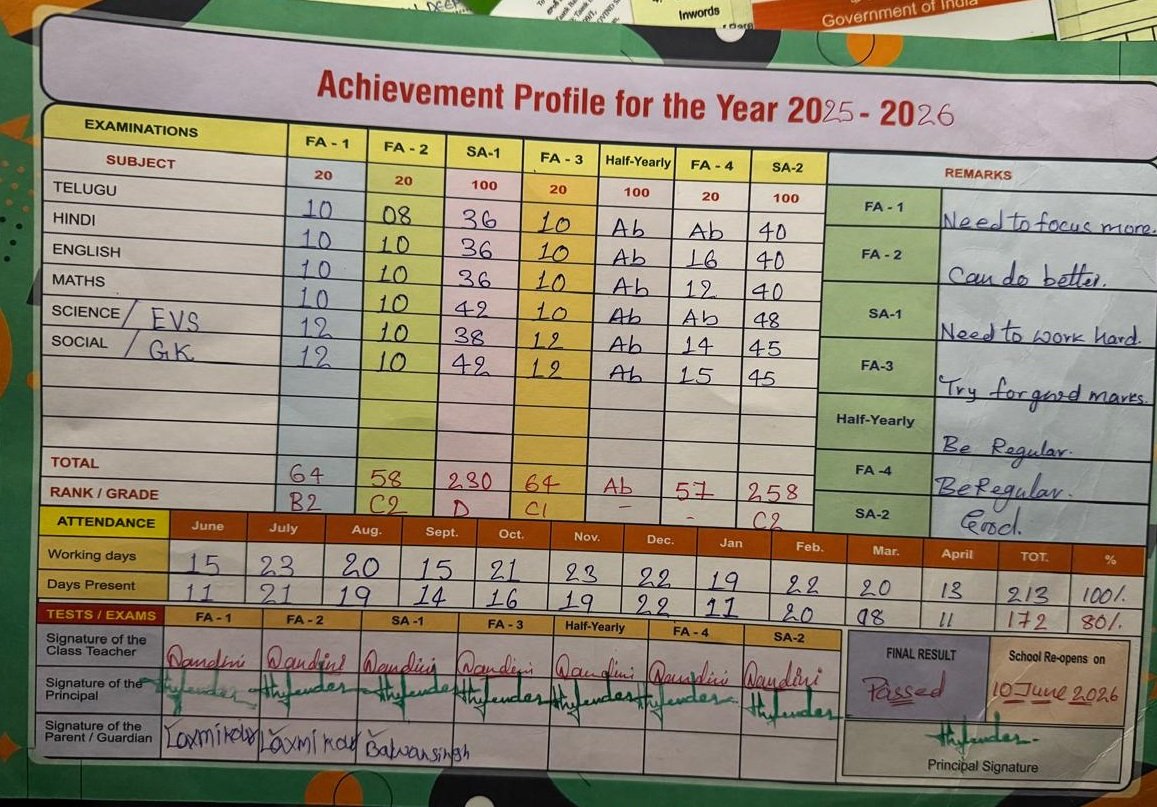 Inwords
Government of India
Achievement Profile for the Year 2025 - 2026
EXAMINATIONS FA - 1 FA - 2 SA-1 FA - 3 Half-Yearly FA - 4 SA-2 REMARKS
SUBJECT 20 20 100 20 100 20 100
TELUGU 10 08 36 10 Ab Ab 40
HINDI 10 10 36 10 Ab 16 40
ENGLISH 10 10 36 10 Ab 12 40
MATHS 10 10 42 10 Ab Ab 48
SCIENCE / EVS 12 10 38 12 Ab 14 45
SOCIAL / GK 12 10 42 12 Ab 15 45
TOTAL 64 58 230 64 Ab 57 258
RANK / GRADE B2 C2 D C1 - - C2
FA - 1 Need to focus more.
FA - 2 Can do better.
SA-1 Need to work hard.
FA-3 Try for good marks.
Half-Yearly Be Regular.
FA -4 Be Regular.
SA-2 Good.
ATTENDANCE June July Aug. Sept. Oct. Nov. Dec. Jan Feb. Mar. April TOT. %
Working days 15 23 20 15 21 23 22 19 22 20 13 213 100%
Days Present 11 21 19 14 16 19 22 11 20 08 11 172 80%
TESTS / EXAMS FA - 1 FA - 2 SA -1 FA - 3 Half-Yearly FA - 4 SA-2
Signature of the
Class Teacher Nandini Nandini Nandini Nandini Nandini Nandini Nandini
Signature of the
Principal
Signature of the
Parent / Guardian Balwansingh
FINAL RESULT
Passed
School Re-opens on
10 June 2026
Principal Signature